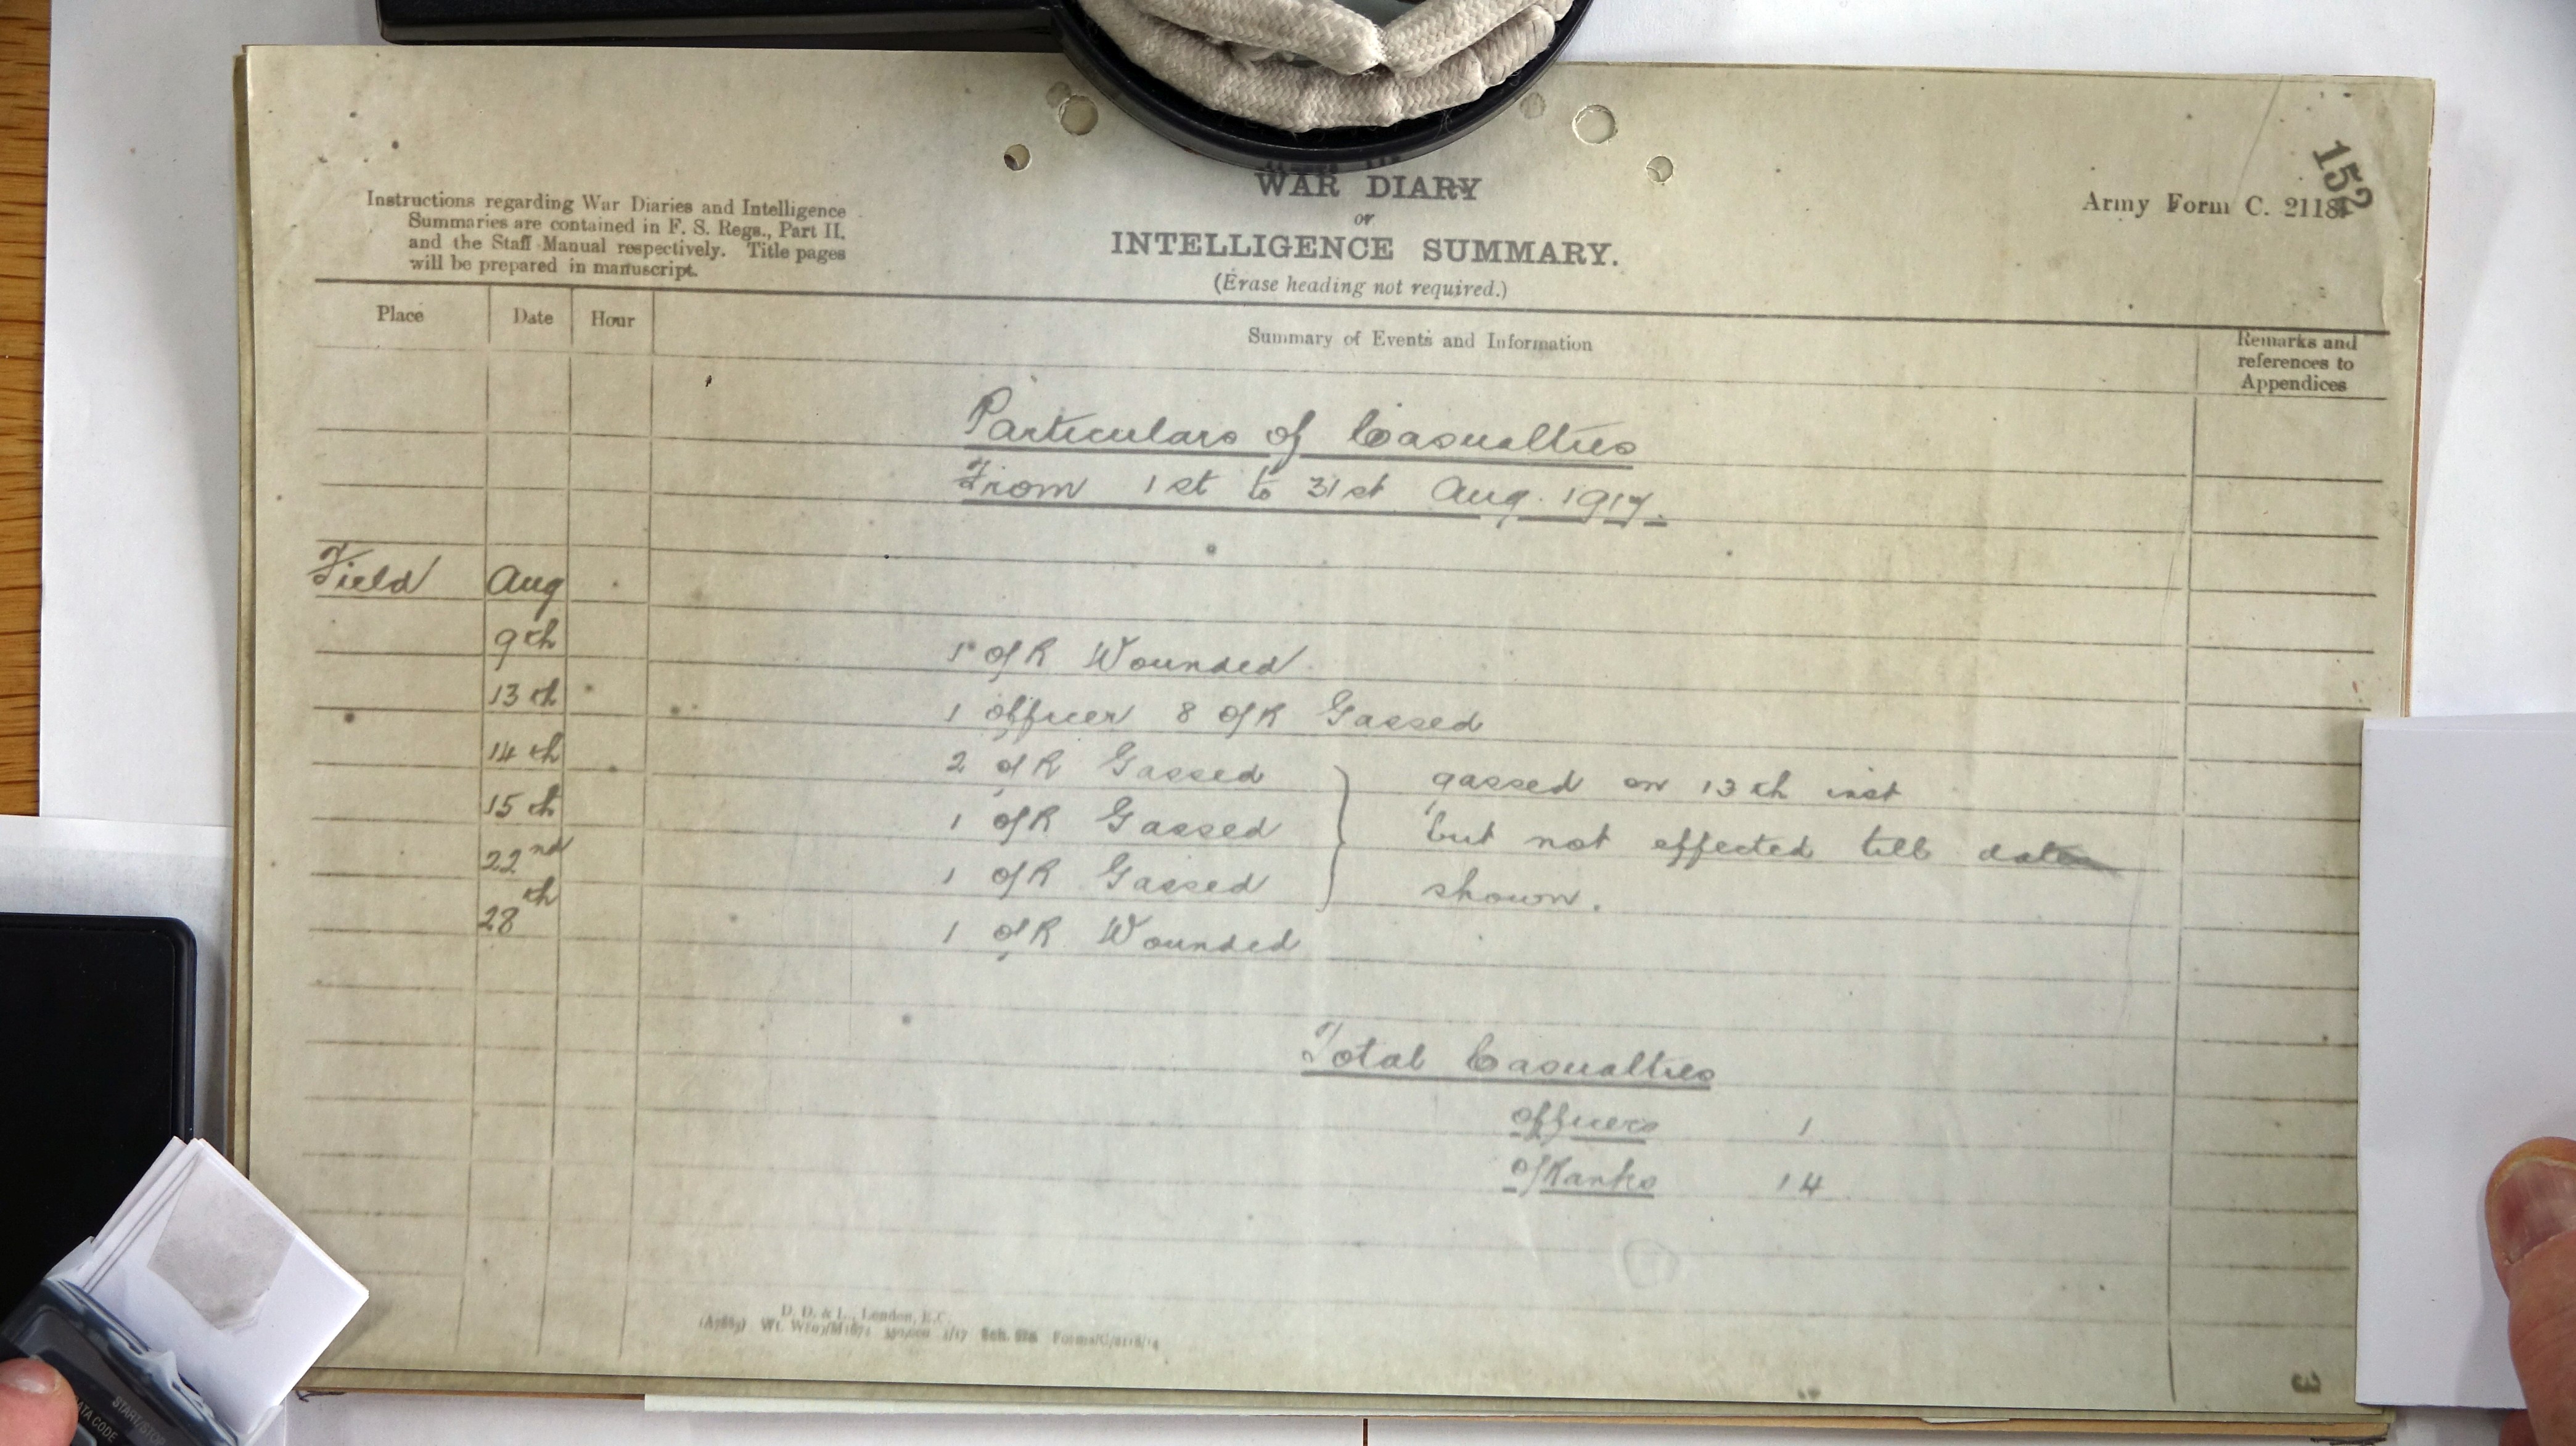 152
Instructions regarding War Diaries and Intelligence
Summaries are contained in F. S. Regs., Part II.
and the Staff Manual respectively. Title pages
will be prepared in manuscript.
WAR DIARY
or
INTELLIGENCE SUMMARY.
(Erase heading not required.)
Army Form C. 2118.
Place Date Hour Summary of Events and Information Remarks and
references to
Appendices
Particulars of Casualties
From 1st to 31st Aug. 1917.
Field Aug
9th 1 O/R Wounded
13th 1 officer 8 O/R Gassed
14th 2 O/R Gassed } gassed on 13th inst
15th 1 O/R Gassed } but not effected till date
22nd 1 O/R Gassed } shown.
28th 1 O/R Wounded
Total Casualties
Officers 1
O/Ranks 14
D. D. & L., London, E.C.
1/17 Sch. Forms/C/2118/14
START/STOP
DATA CODE